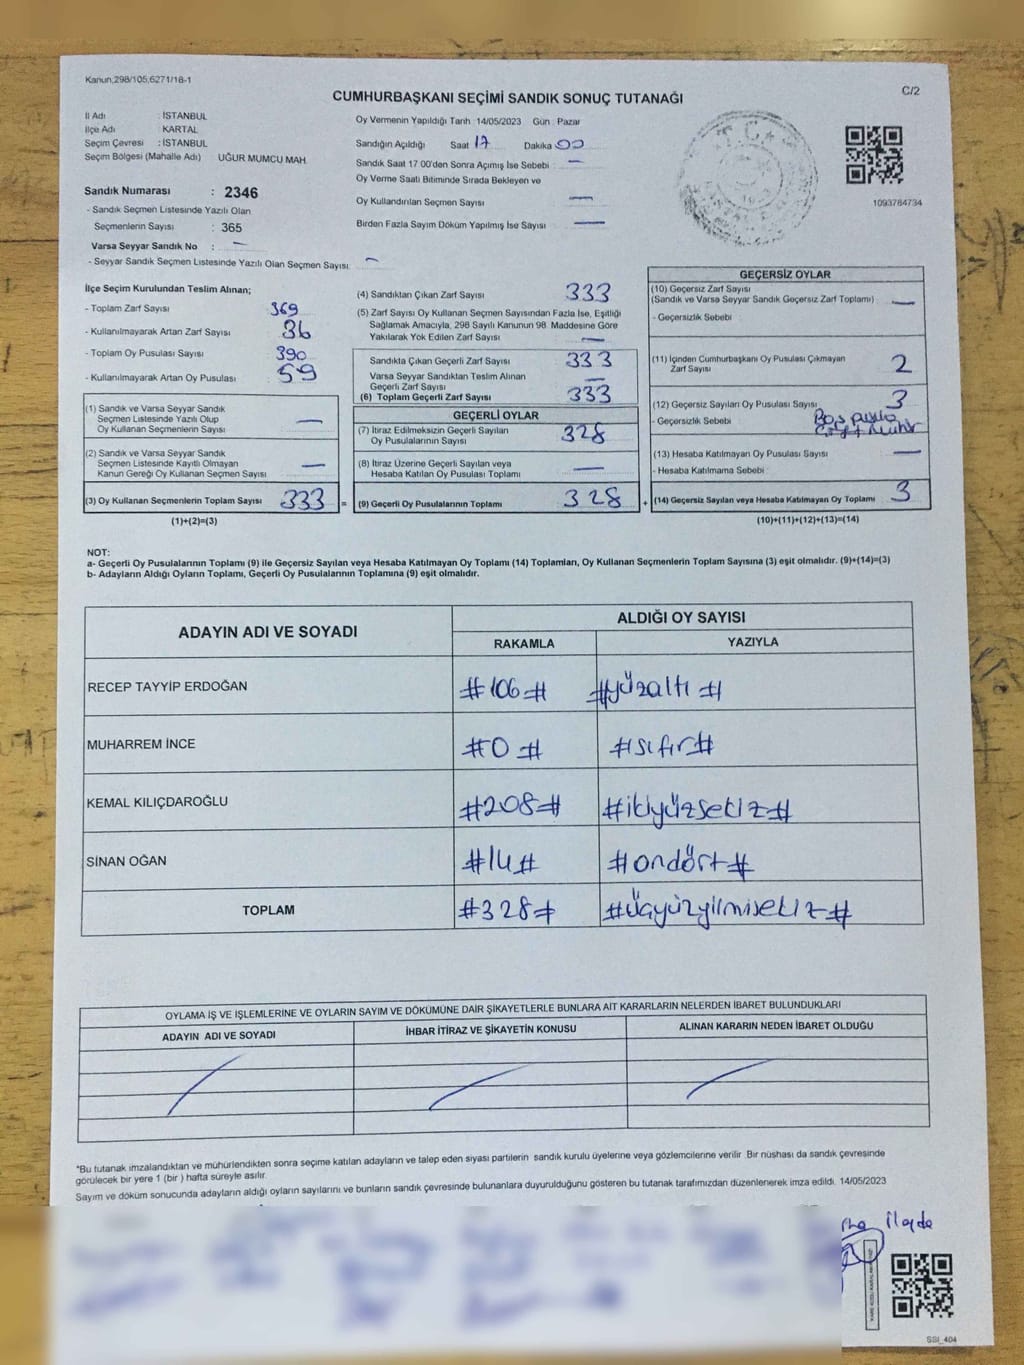 Kanun,298/105,6271/18-1
C/2
CUMHURBAŞKANI SEÇİMİ SANDIK SONUÇ TUTANAĞI
İl Adı : İSTANBUL
İlçe Adı : KARTAL
Seçim Çevresi : İSTANBUL
Seçim Bölgesi (Mahalle Adı) UĞUR MUMCU MAH.
Sandık Numarası : 2346
- Sandık Seçmen Listesinde Yazılı Olan
Seçmenlerin Sayısı : 365
Varsa Seyyar Sandık No : —
- Seyyar Sandık Seçmen Listesinde Yazılı Olan Seçmen Sayısı: —
Oy Vermenin Yapıldığı Tarih 14/05/2023 Gün : Pazar
Sandığın Açıldığı Saat 17 Dakika 00
Sandık Saat 17 00'den Sonra Açımış İse Sebebi : —
Oy Verme Saati Bitiminde Sırada Bekleyen ve
Oy Kullandırılan Seçmen Sayısı —
Birden Fazla Sayım Döküm Yapılmış İse Sayısı —
T.C.
1093784734
İlçe Seçim Kurulundan Teslim Alınan;
- Toplam Zarf Sayısı 369
- Kullanılmayarak Artan Zarf Sayısı 36
- Toplam Oy Pusulası Sayısı 390
- Kullanılmayarak Artan Oy Pusulası 59
(1) Sandık ve Varsa Seyyar Sandık
Seçmen Listesinde Yazılı Olup
Oy Kullanan Seçmenlerin Sayısı —
(2) Sandık ve Varsa Seyyar Sandık
Seçmen Listesinde Kayıtlı Olmayan
Kanun Gereği Oy Kullanan Seçmen Sayısı —
(3) Oy Kullanan Seçmenlerin Toplam Sayısı 333 =
(1)+(2)=(3)
(4) Sandıktan Çıkan Zarf Sayısı 333
(5) Zarf Sayısı Oy Kullanan Seçmen Sayısından Fazla İse, Eşitliği
Sağlamak Amacıyla, 298 Sayılı Kanunun 98. Maddesine Göre
Yakılarak Yok Edilen Zarf Sayısı —
Sandıkta Çıkan Geçerli Zarf Sayısı 333
Varsa Seyyar Sandıktan Teslim Alınan
Geçerli Zarf Sayısı —
(6) Toplam Geçerli Zarf Sayısı 333
GEÇERLİ OYLAR
(7) İtiraz Edilmeksizin Geçerli Sayılan
Oy Pusulalarının Sayısı 328
(8) İtiraz Üzerine Geçerli Sayılan veya
Hesaba Katılan Oy Pusulası Toplamı —
(9) Geçerli Oy Pusulalarının Toplamı 328 +
GEÇERSİZ OYLAR
(10) Geçersiz Zarf Sayısı
(Sandık ve Varsa Seyyar Sandık Geçersiz Zarf Toplamı) —
- Geçersizlik Sebebi :
(11) İçinden Cumhurbaşkanı Oy Pusulası Çıkmayan
Zarf Sayısı 2
(12) Geçersiz Sayılan Oy Pusulası Sayısı 3
- Geçersizlik Sebebi : Boş pusula
Çift Mühür
(13) Hesaba Katılmayan Oy Pusulası Sayısı —
- Hesaba Katılmama Sebebi :
(14) Geçersiz Sayılan veya Hesaba Katılmayan Oy Toplamı 3
(10)+(11)+(12)+(13)=(14)
NOT:
a- Geçerli Oy Pusulalarının Toplamı (9) ile Geçersiz Sayılan veya Hesaba Katılmayan Oy Toplamı (14) Toplamları, Oy Kullanan Seçmenlerin Toplam Sayısına (3) eşit olmalıdır. (9)+(14)=(3)
b- Adayların Aldığı Oyların Toplamı, Geçerli Oy Pusulalarının Toplamına (9) eşit olmalıdır.
ADAYIN ADI VE SOYADI
ALDIĞI OY SAYISI
RAKAMLA YAZIYLA
RECEP TAYYİP ERDOĞAN #106# #yüzaltı#
MUHARREM İNCE #0# #sıfır#
KEMAL KILIÇDAROĞLU #208# #ikiyüzsekiz#
SİNAN OĞAN #14# #ondört#
TOPLAM #328# #üçyüzyirmisekiz#
OYLAMA İŞ VE İŞLEMLERİNE VE OYLARIN SAYIM VE DÖKÜMÜNE DAİR ŞİKAYETLERLE BUNLARA AİT KARARLARIN NELERDEN İBARET BULUNDUKLARI
ADAYIN ADI VE SOYADI İHBAR İTİRAZ VE ŞİKAYETİN KONUSU ALINAN KARARIN NEDEN İBARET OLDUĞU
*Bu tutanak imzalandıktan ve mühürlendikten sonra seçime katılan adayların ve talep eden siyasi partilerin sandık kurulu üyelerine veya gözlemcilerine verilir. Bir nüshası da sandık çevresinde
görülecek bir yere 1 (bir) hafta süreyle asılır.
Sayım ve döküm sonucunda adayların aldığı oyların sayılarını ve bunların sandık çevresinde bulunanlara duyurulduğunu gösteren bu tutanak tarafımızdan düzenlenerek imza edildi. 14/05/2023
SSI_404